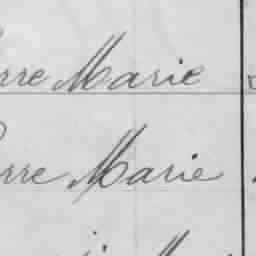 rre Marie
erre Marie